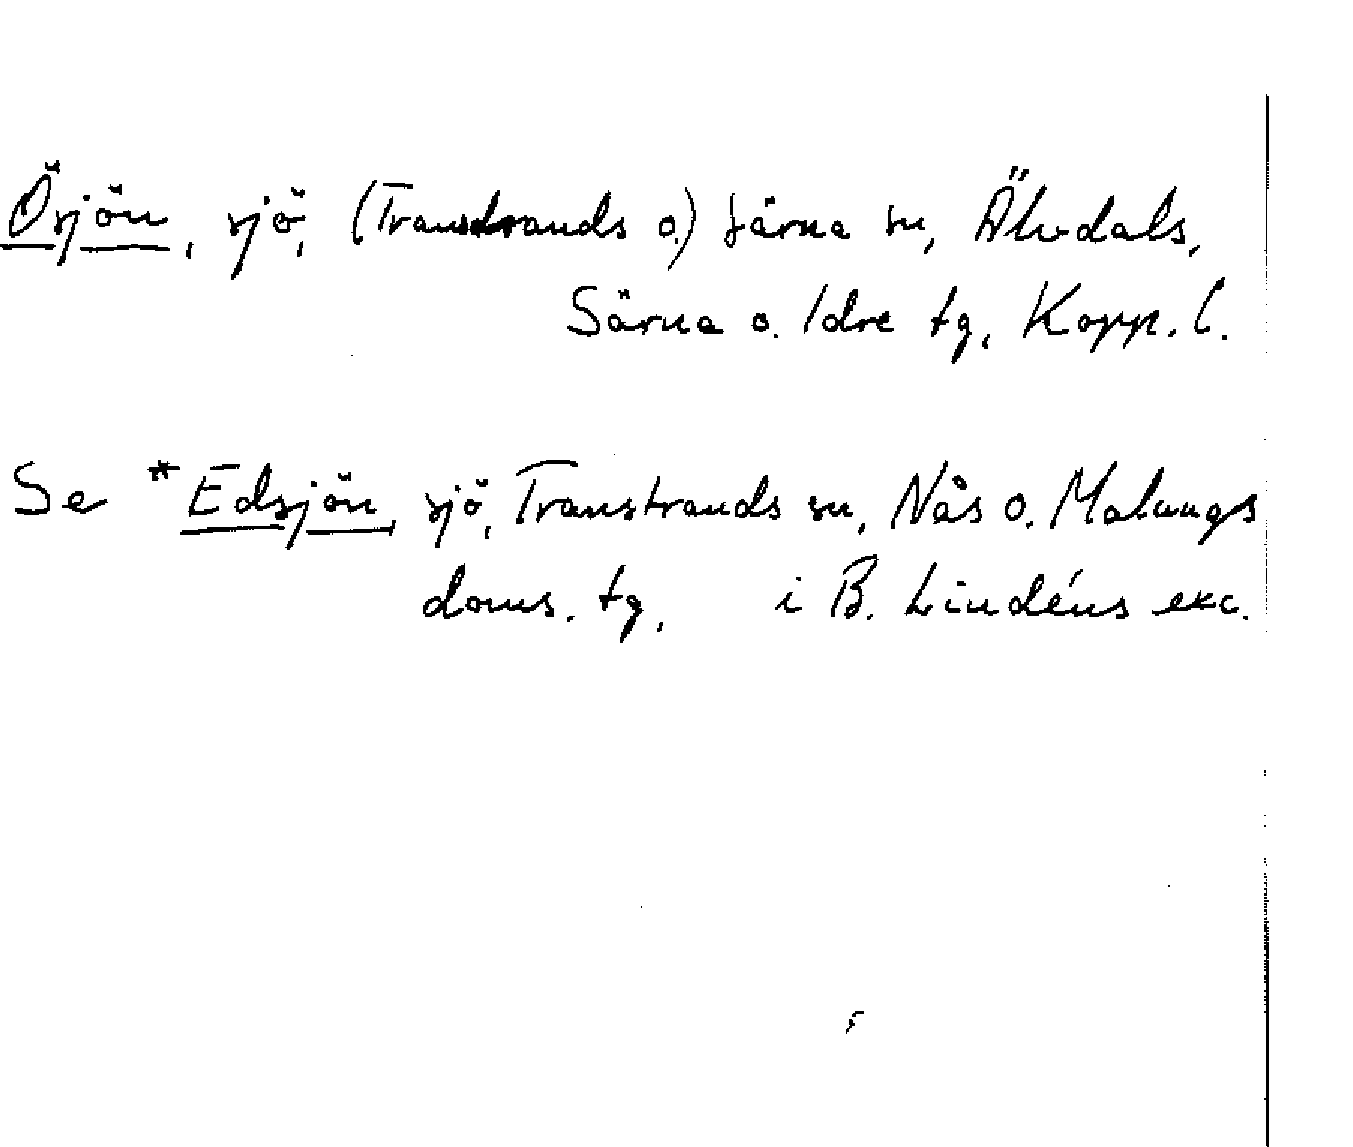 Ösjön, sjö, (Transtrands o.) Särna sn, Älvdals,
Särna o. Idre tg, Kopp. l.
Se *Edsjön, sjö, Transtrands sn, Nås o. Malungs
doms. tg, i B. Lindéns exc.